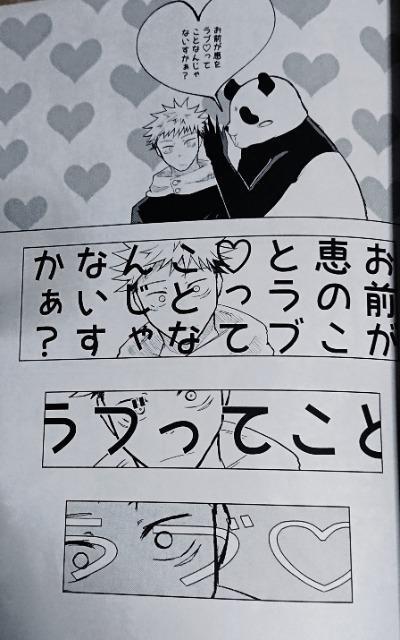 お前が恵を
ラブ♡って
ことなんじゃ
ないすかぁ？
お前が
恵のこ
とラブ
♡って
ことな
んじゃ
ないす
かぁ？
ラブってこと
ラブ♡